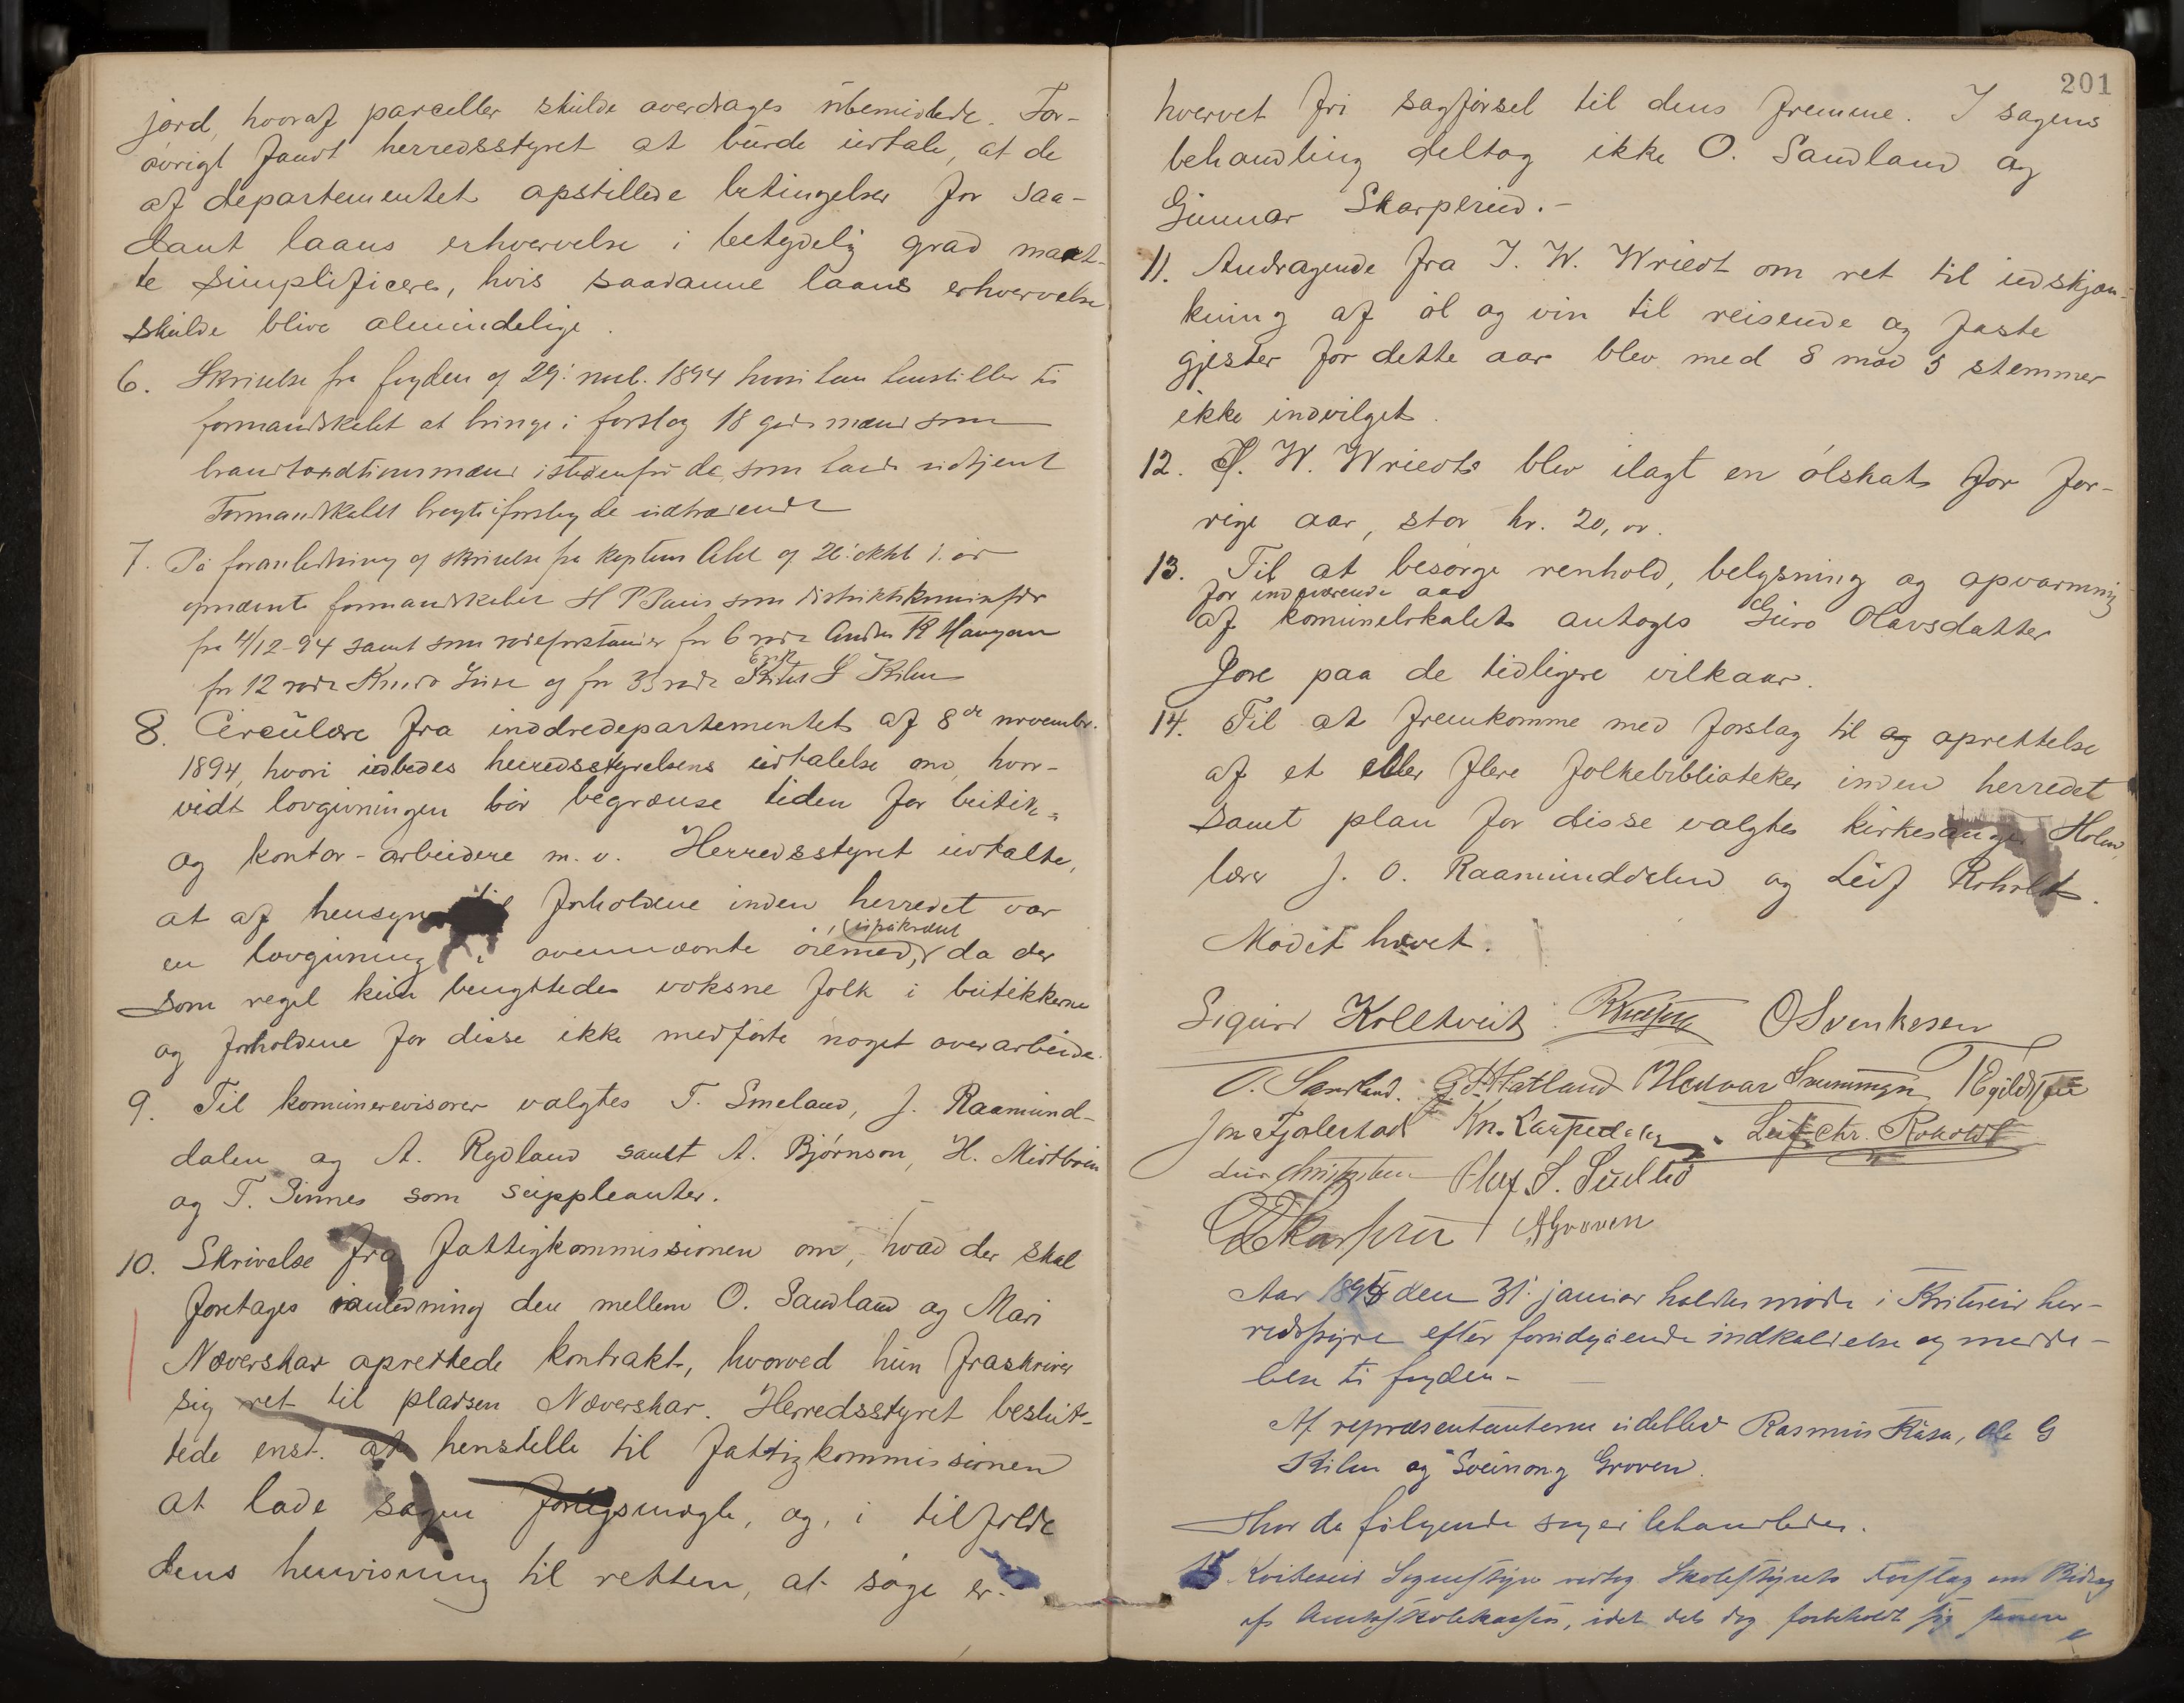 jord, hvoraf parceller skulde overdrages ubemidlede. For-
øvrigt fandt herredsstyret at burde udtale, at de
af departementet opstillede betingelser for saa-
dant laans erhvervelse i betydelig grad maat-
te simplificeres, hvis saadanne laans erhvervelse
skulde blive almindelige.
6. Skrivelse fra fogden af 29: novb. 1894 hvori han henstiller til
formandskabet at bringe i forslag 18 gode mænd som
brandtaxtionsmænd istedenfor de, som havde udtjent
Formandskabet bragte i forslag de udtrædende
7. På foranledning af skrivelse fra kaptein Abel af 26: oktbr f. år
opnævnte formandskabet H P Juris som distriktskommissær
fra 4/12-94 samt som rodeforstander for 6 rode Anders K Haugan
for 12 rode Knud og for 33 rode S Kilen
8. Circulære fra indredepartementet af 8de novembr.
1894, hvori udbedes herredsstyrelsens udtalelse om, hvor-
vidt lovgivningen bør begrænse tiden for butik-
og kontor-arbeidere m. v. Herredsstyret udtalte,
at af hensyn til forholdene inden herredet var
en lovgivning i ovennævnte øiemed, (upåkrævet da der
som regel kun benyttedes voksne folk i butikkerne
og forholdene for disse ikke medførte noget overarbeide.
9. Til komunerevisorer valgtes T. Smeland, J. Raamund-
dalen og A. Rydland samt A. Bjørnson, H. Midtbøen
og T. Sinnes som suppleanter.
10. Skrivelse fra fattigkommissionen om, hvad der skal
foretages i anledning den mellem O. Sandland og Mari
Næverskar oprettede kontrakt, hvorved hun fraskriver
sig ret til pladsen Næverskar. Herredsstyret beslut-
tede enst. at henstille til fattigkommissionen
at lade sagen forligsmægle, og, i tilfælde
dens henvisning til retten, at søge er-
201
hvervet fri sagførsel til dens fremme. I sagens
behandling deltog ikke O. Sandland og
Gunnar Skarpreid.-
11. Andragende fra J. W. Wriedt om ret til udskjæn-
kning af øl og vin til reisende og faste
gjester for dette aar blev med 8 mod 5 stemmer
ikke indvilget.
12. J. W. Wriedts blev ilagt en ølskat for for-
rige aar, stor kr. 20,00.
13. Til at besørge renhold, belysning og opvarmning
for indeværende aar
af komunelokalet antoges Guro Olavsdatter
Jore paa de tidligere vilkaar.
14. Til at fremkomme med forslag til og oprettelse
af et eller flere folkebiblioteker inden herredet
samt plan for disse valgtes kirkesanger Holm,
lærer J. O. Raamunddalen og Leif Roholdt.
Mødet hævet.
Sigurd Kolltveit O Svenkesen
O. Sandland. G. H. Hatland Halvor Svenningsen
Jon Fjalestad Kn. Leif Chr. Roholdt
Christensen Oluf S. Sudbø
G Skarpreid A Groven
Aar 1895 den 31: januar holdtes møde i Kviteseid her-
redsstyre efter forudgående indkaldelse og medde-
lelse til fogden-
Af repræsentanterne udeblev Rasmus Råsa, Ole G
Kilen og Sveinong Groven.
Hvor da følgende sager behandledes.
15 Kviteseid Sognestyre vedtog Skolestyrets Forslag om Bidrag
af Amtsskolekassen, idet det dog forbeholdt sig senere